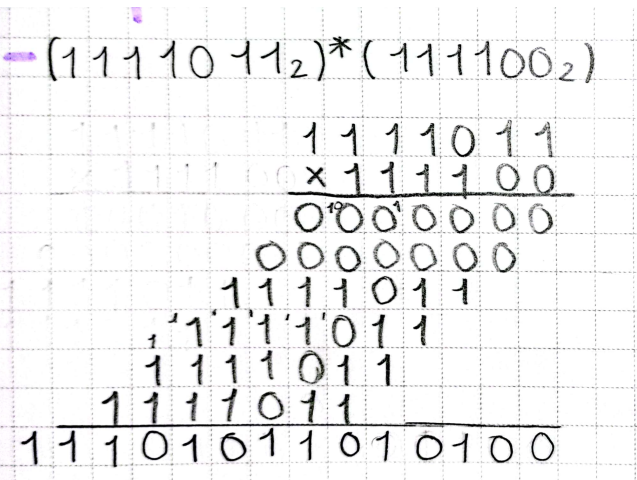 -(1111011₂)*(111100₂)
1111011
×111100
0000000
0000000
1111011
1111011
1111011
1111011
11101011010100